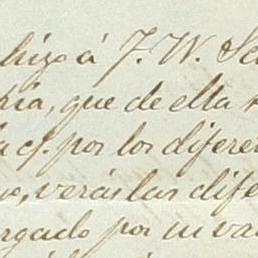 hizo á J. W. Sc
hia, que de ella
la cf. por los difere
no, verás las dife
rgado por inva